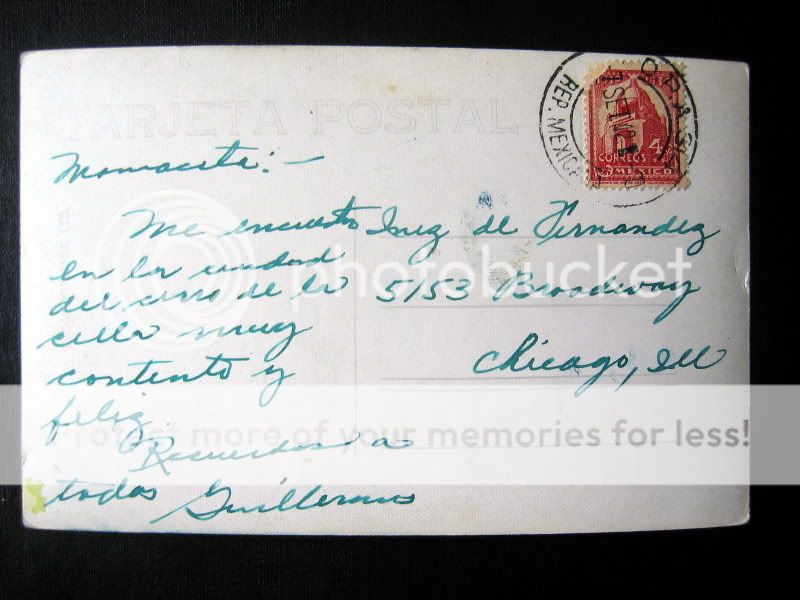 TARJETA POSTAL
Mamacita:-
Me encuentro
en la ciudad
del cerro de la
silla muy
contento y
feliz
Recuerdos a
todos Guillermo
Inez de Fernandez
5153 Broadway
Chicago, Ill
REP. MEXIC
SET
4
CORREOS
MEXICO
photobucket
Protect more of your memories for less!